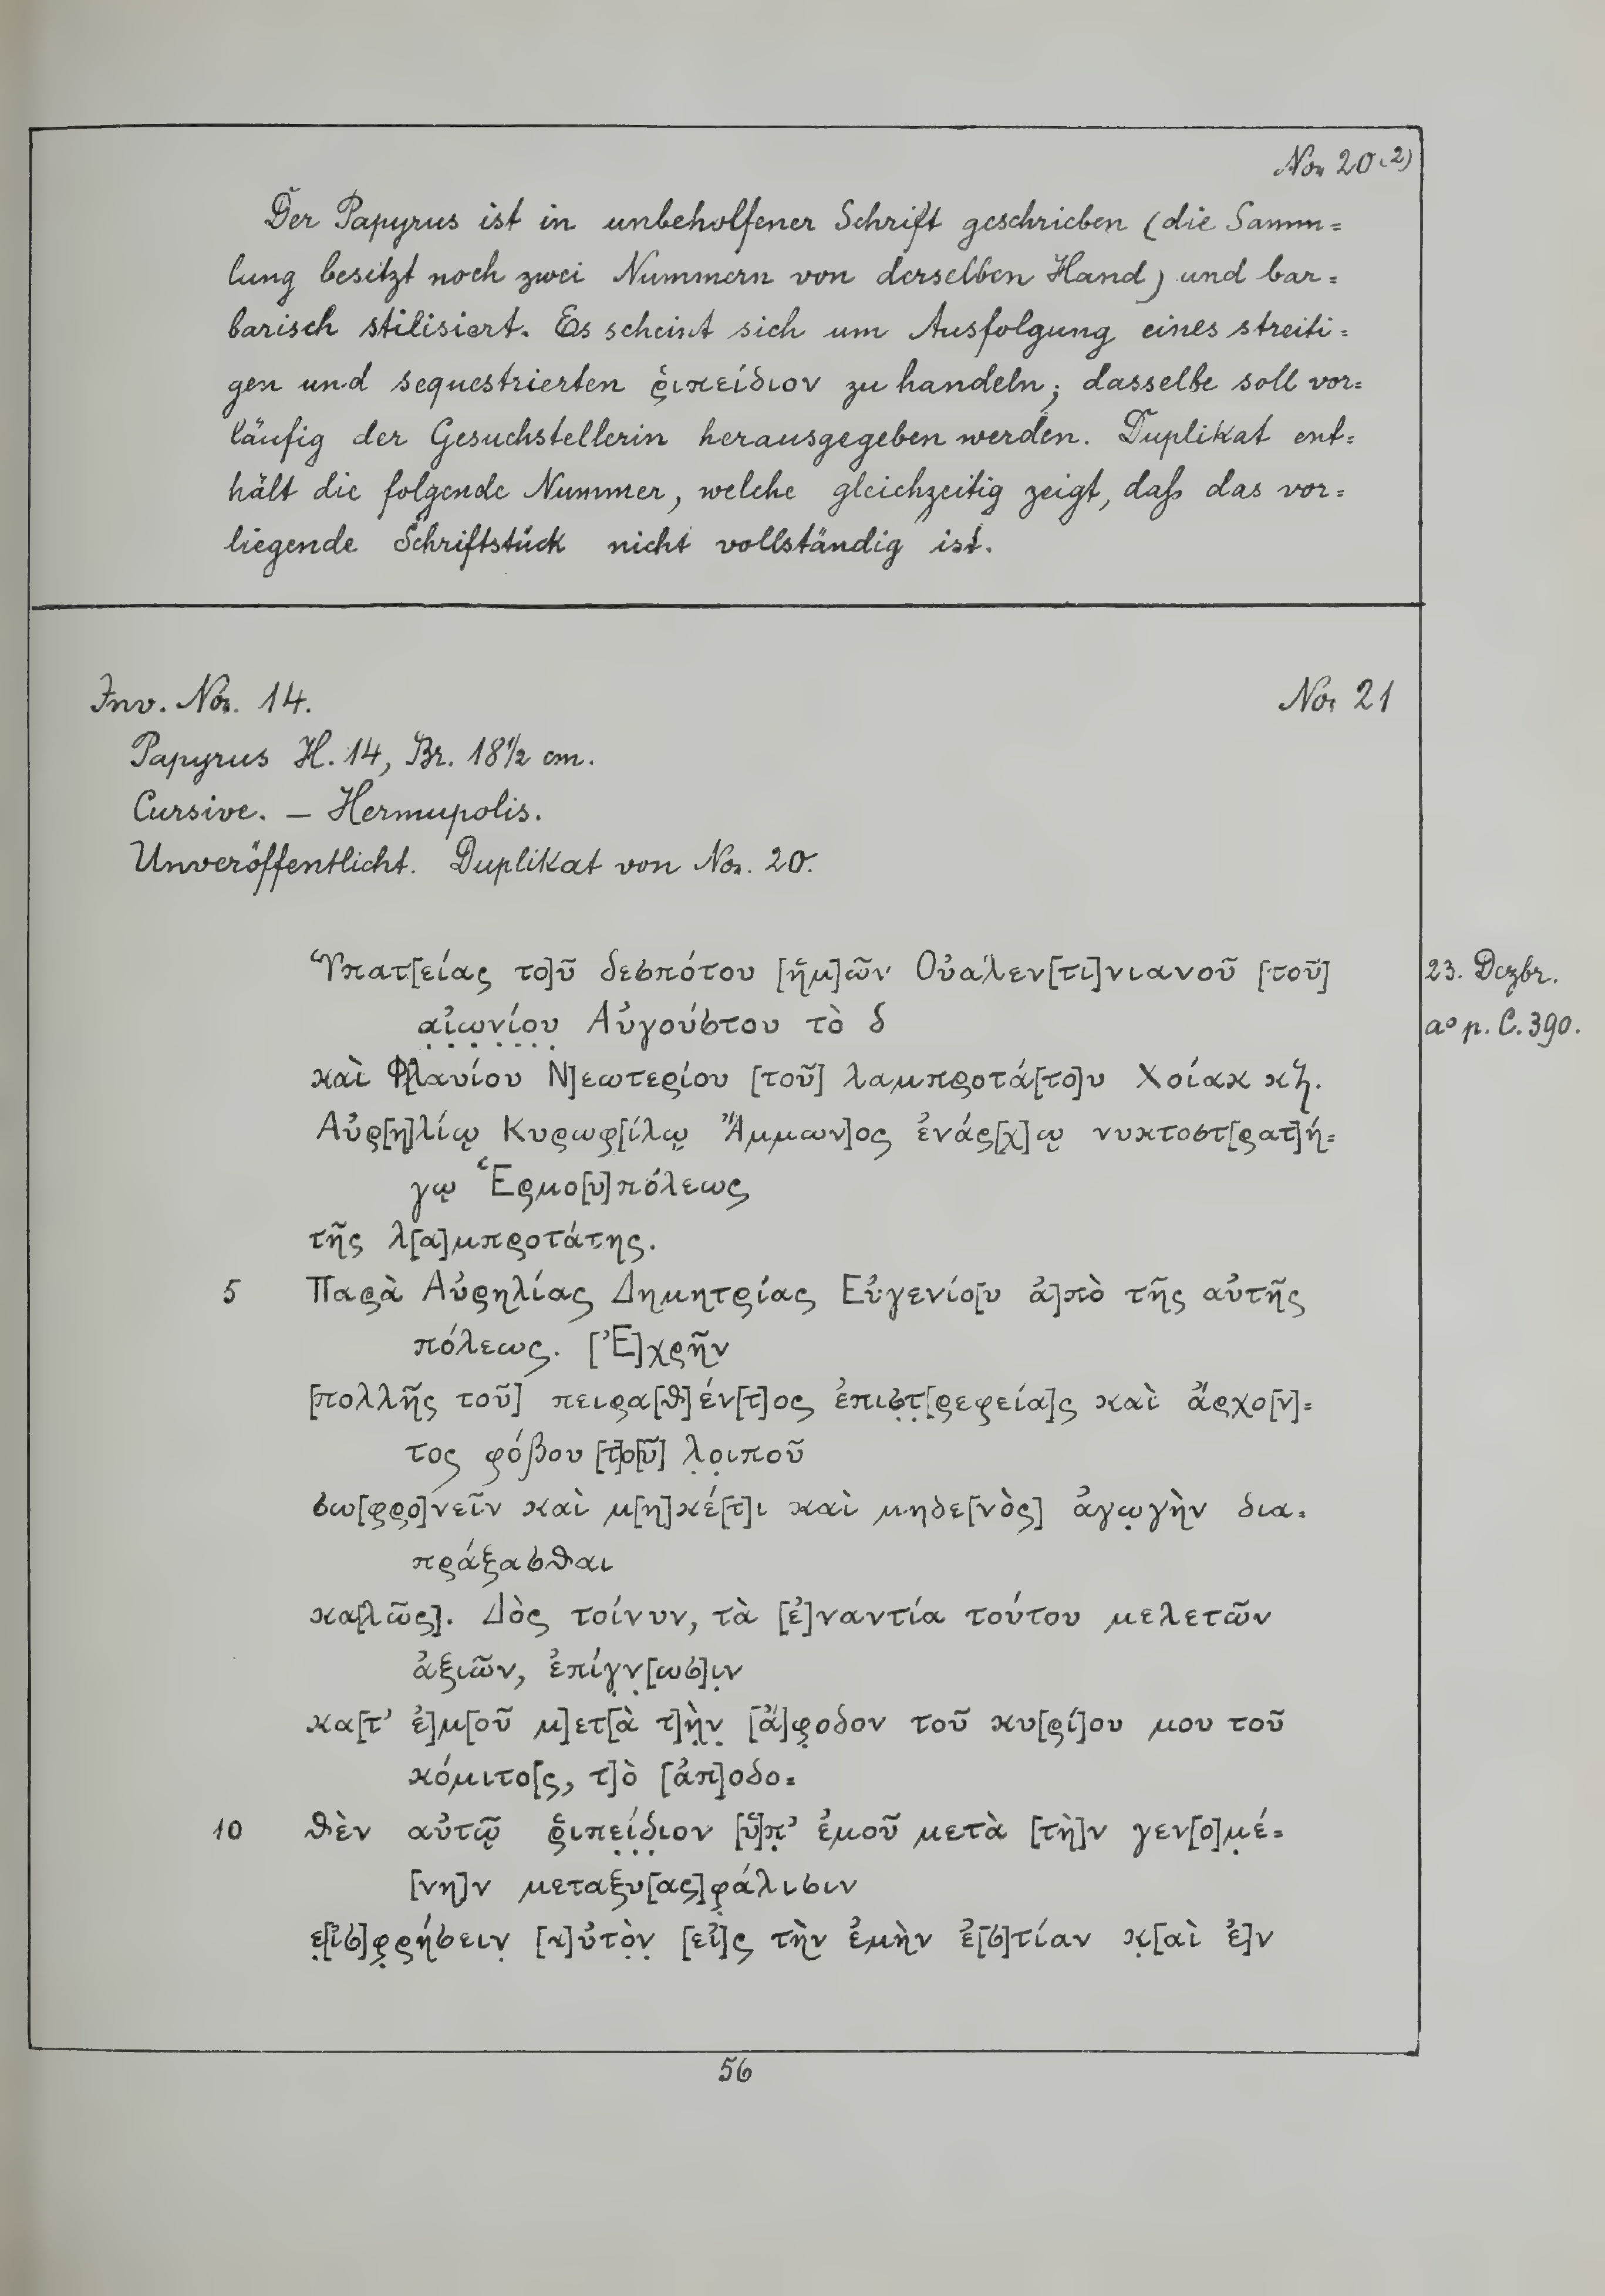 No. 20 (2)
Der Papyrus ist in unbeholfener Schrift geschrieben (die Samm=
lung besitzt noch zwei Nummern von derselben Hand) und bar=
barisch stilisiert. Es scheint sich um Ausfolgung eines streiti=
gen und sequestrierten ῥιπείδιον zu handeln; dasselbe soll vor=
läufig der Gesuchstellerin herausgegeben werden. Duplikat ent=
hält die folgende Nummer, welche gleichzeitig zeigt, daß das vor=
liegende Schriftstück nicht vollständig ist.
Inv. No. 14.
No. 21
Papyrus H. 14, Br. 18½ cm.
Cursive. — Hermupolis.
Unveröffentlicht. Duplikat von No. 20.
Ὑπατ[είας το]ῦ δεσπότου [ἡμ]ῶν Οὐαλεν[τι]νιανοῦ [τοῦ]
23. Dezbr.
α̣ἰ̣ω̣ν̣ί̣ο̣υ̣ Αὐγούστου τὸ δ
aº p. C. 390.
καὶ Φ[λαυίου Ν]εωτερίου [τοῦ] λαμπροτά[το]υ Χοίακ κζ.
Αὐρ[η]λίῳ Κυρωφ[ίλῳ Ἄμμων]ος ἐνάρ[χ]ῳ νυκτοστ[ρατ]ή=
γῳ Ἑρμο[υ]πόλεως
τῆς λ[α]μπροτάτης.
5 Παρὰ Αὐρηλίας Δημητρίας Εὐγενίο[υ ἀ]πὸ τῆς αὐτῆς
πόλεως. [Ἐ]χρῆν
[πολλῆς τοῦ] πειρα[θ]έν[τ]ος ἐπισ̣τ̣[ρεφεία]ς καὶ ἄρχο[ν]=
τος φόβου [τ]ο[ῦ] λ̣ο̣ιποῦ
σω[φρο]νεῖν καὶ μ[η]κέ[τ]ι καὶ μηδε[νὸς] ἀγω̣γὴν δια=
πράξασθαι
κα[λῶς]. Δὸς τοίνυν, τὰ [ἐ]ναντία τούτου μελετῶν
ἀξιῶν, ἐπίγ̣ν̣[ωσ]ι̣ν
κα[τ’ ἐ]μ[οῦ μ]ετ[ὰ τ]ὴ̣ν̣ [ἄ]φ̣οδον τοῦ κυ[ρί]ου μου τοῦ
κόμιτο[ς, τ]ὸ [ἀπ]οδο=
10 θὲν αὐτῷ ῥιπε̣ί̣δ̣ιον [ὑ]π̣’ ἐμοῦ μετὰ [τὴ]ν γεν[ο]μ̣έ=
[νη]ν μεταξυ[ας]φ̣άλισιν
ε̣[ἰσ]φ̣ρήσειν̣ [α]ὐτὸ̣ν̣ [εἰ]ς τὴν ἐμὴν ἑ[σ]τίαν κ̣[αὶ ἐ]ν
56